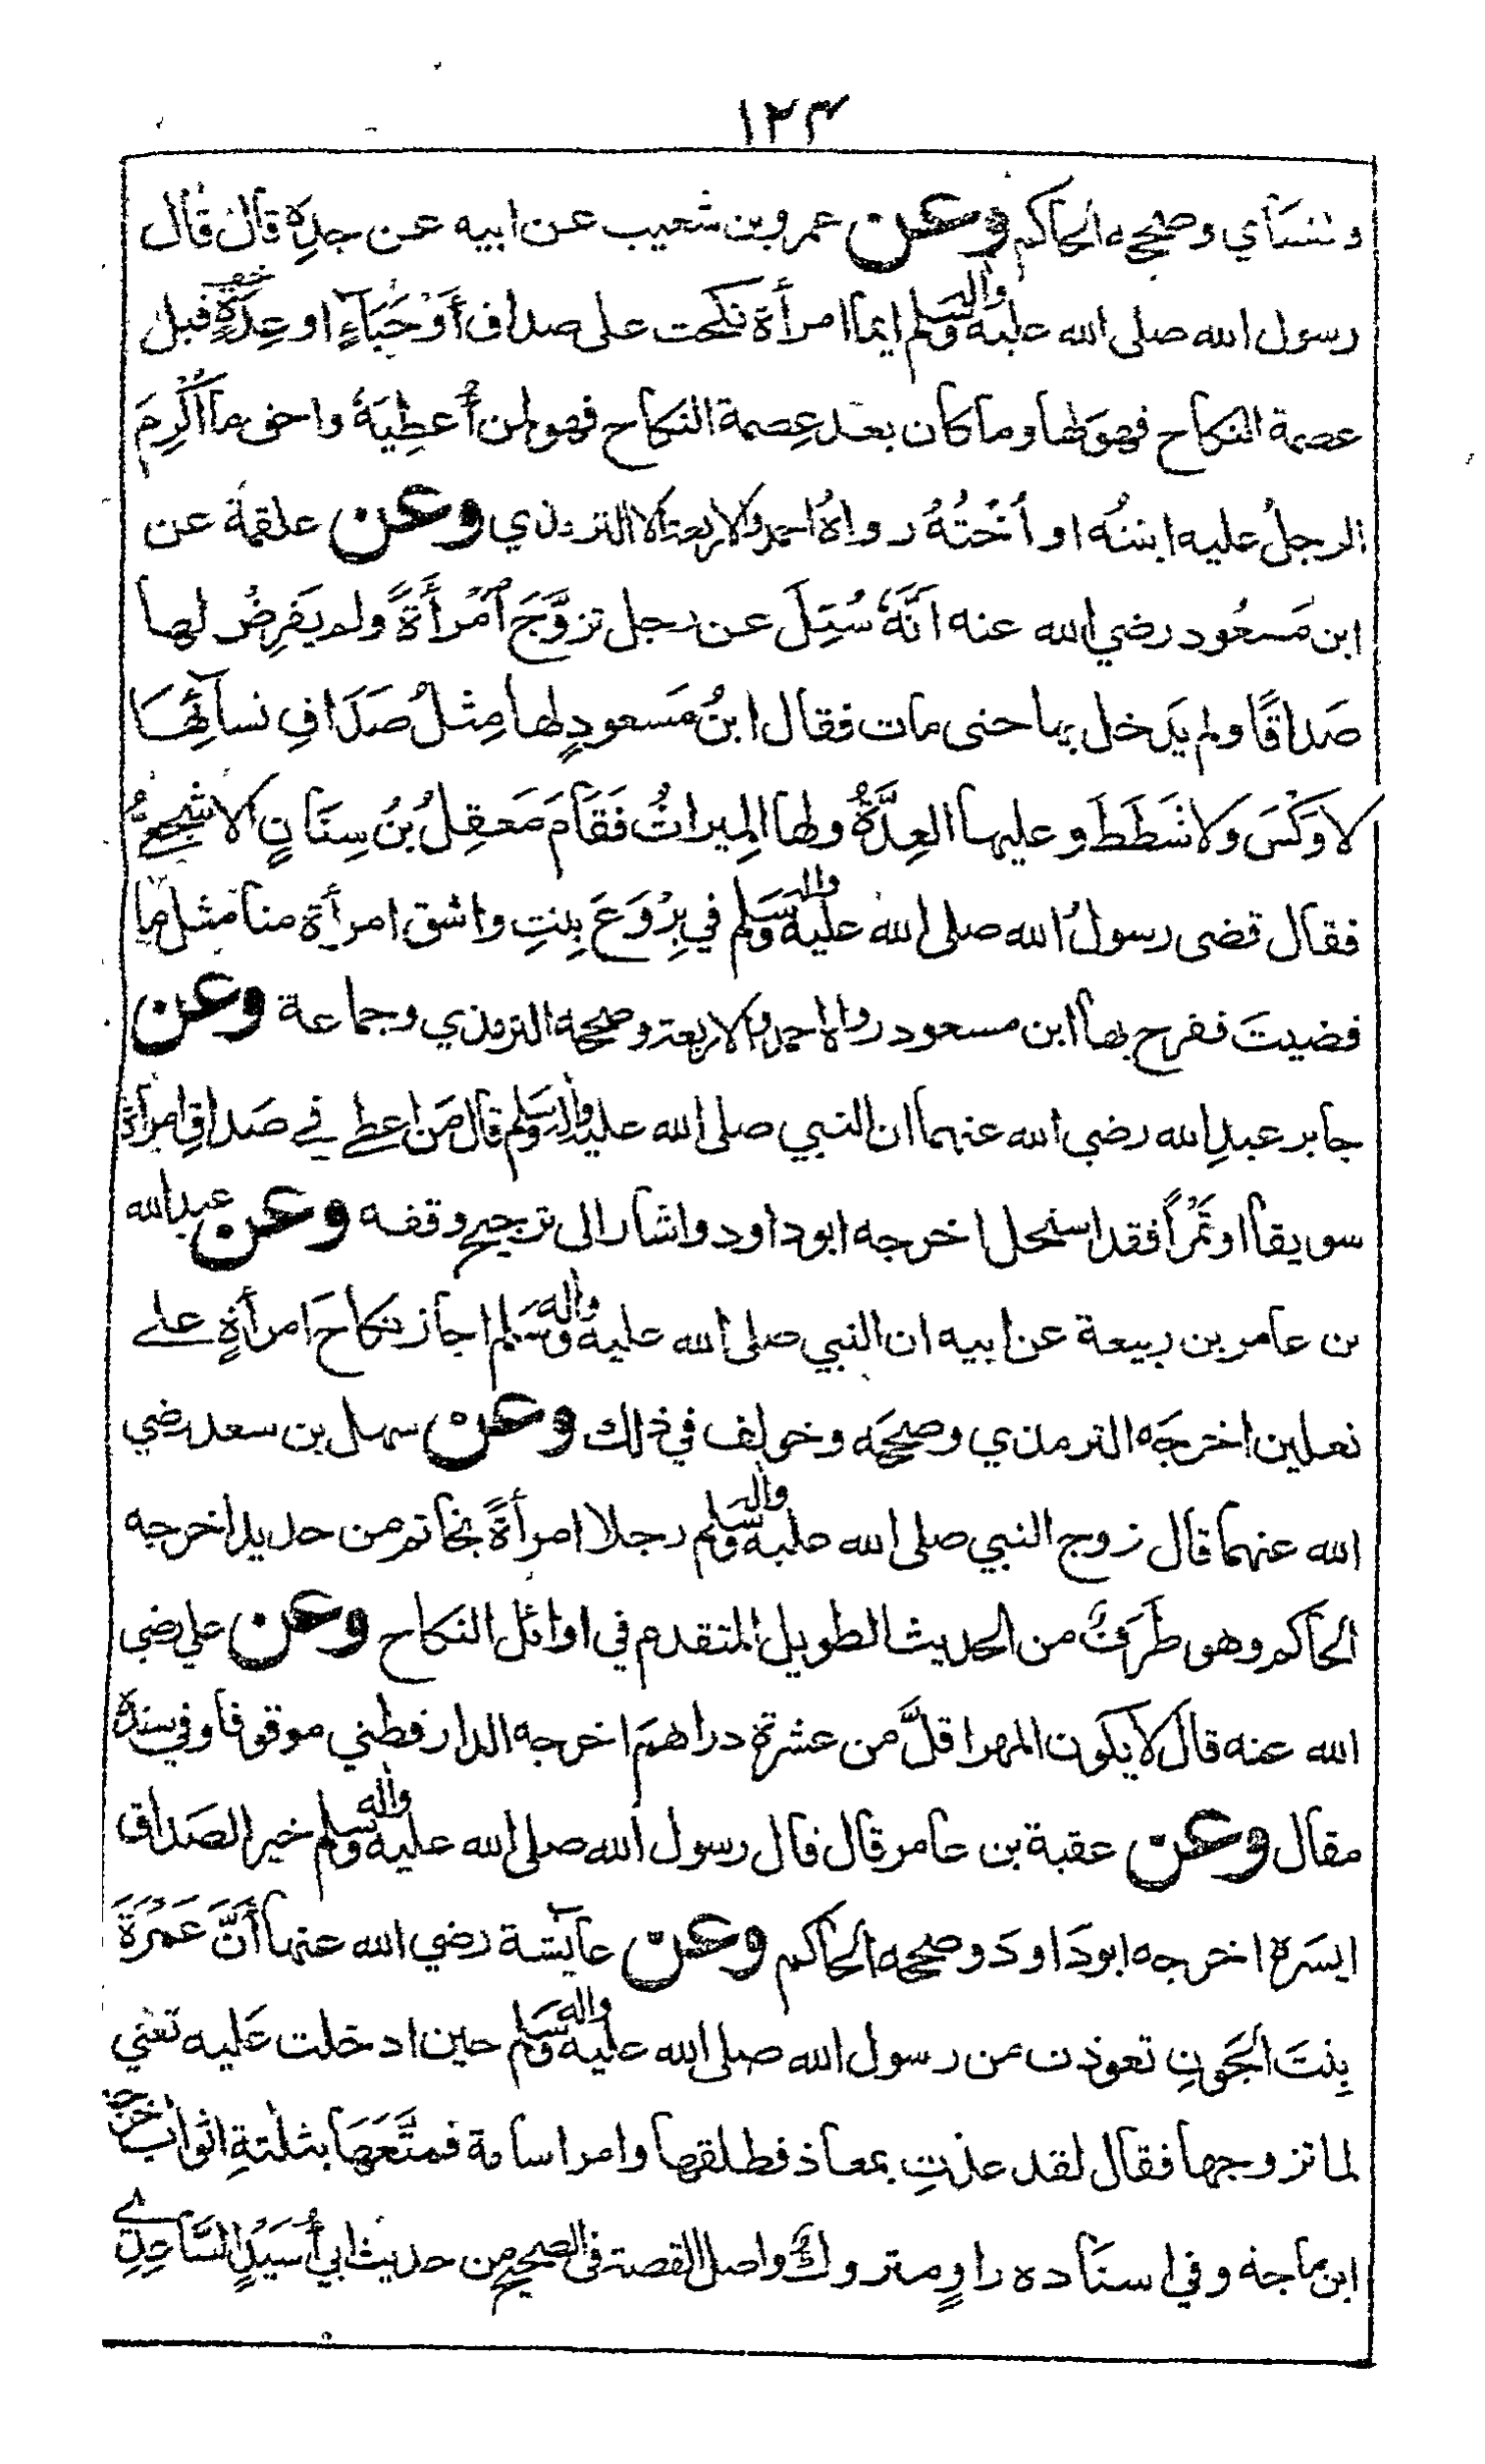 ١٢٣
ونسَآي وصححه الحاكم وعن عمرو بن شعيب عن ابيه عن جدِهٖ قال قال
رسول الله صلى الله عليه واله وسلم ايما امرأة نكحت على صداق أَوْ حَبَاءٍ او عِدَةٍ قبل
عصمة النكاح فهوَ لها وما كان بعد عِصمة النكاح فهو لمن أُعطِيَهُ واحق ما اُكْرِمَ
الرجلُ عليه ابنتُه او اُخْتُهُ رواهُ احمد والاربعة الا الترمذي وعن علقمة عن
ابن مَسعُود رضي الله عنه اَنَّهُ سُئِلَ عن رجل تزوَّجَ امْرأَةً ولم يَفرِضْ لها
صَداقًا ولم يَدخل بها حتى مات فقال ابنُ مَسعودٍ لها مِثلُ صَدَاقِ نسآئِهَا
لا وَكْسَ ولا شَطَطَ وعليها العِدَّةُ ولها المِيراثُ فَقَامَ مَعقِلُ بنُ سِنَانٍ الاشجعيُّ
فقال قضى رسولُ الله صلى الله عليه واله وسلم في بِرْوَعَ بِنتِ واشق امرأة منا مثل ما
قضيتَ ففرح بها ابن مسعود رواه احمد والاربعة وصححه الترمذي وجماعة وعن
جابر عبدِ الله رضي الله عنهما ان النبي صلى الله عليه واله وسلم قال مَن اعطى في صَداقِ امرأة
سويقا او تَمْراً فقد استحل اخرجه ابو داود واشار الى ترجيح وقفه وعن عبد الله
بن عامر بن ربيعة عن ابيه ان النبي صلى الله عليه واله وسلم اجاز نكاح امرأةٍ على
نعلين اخرجَه الترمذي وصححَه وخولف في ذلك وعن سهل بن سعد رضي
الله عنهما قال زوج النبي صلى الله عليه واله وسلم رجلا امرأةً بخاتم من حديد اخرجه
الحاكم وهو طَرَفٌ من الحديث الطويل المتقدم في اوائل النكاح وعن علي رضي
الله عنه قال لا يكون المهر اقلَّ من عشرة دراهمَ اخرجه الدارقطني موقوفا وفي سنده
مقال وعن عقبة بن عامر قال قال رسول الله صلى الله عليه واله وسلم خير الصَداق
ايسَره اخرجه ابو دَاودَ وصححه الحاكم وعن عايشة رضي الله عنها أَنَّ عَمْرَةَ
بِنتَ الجَونِ تعوذت من رسول الله صلى الله عليه واله وسلم حين ادخلت عَليه تعني
لما تزوجها فقال لقد عذتِ بمعاذ فطلقها وامر اسامة فمتَّعَهَا بثلثةِ اثواب اخرجه
ابن ماجة وفي اسنَاده راوٍ متروكٌ واصل القصة فى الصحيح من حديث ابي اُسَيدٍ السَّاعِدِي